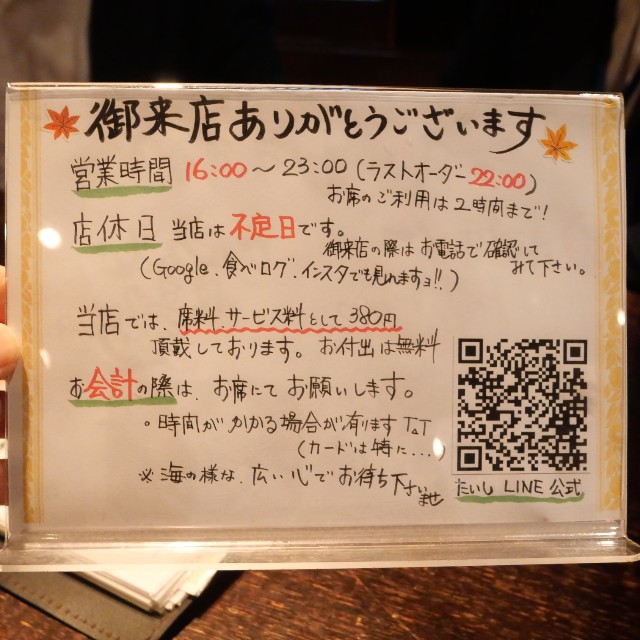 御来店ありがとうございます
営業時間 16:00～23:00(ラストオーダー22:00)
お席のご利用は2時間まで!
店休日 当店は不定日です。
御来店の際はお電話で確認して
みて下さい。
(Google、食べログ、インスタでも見れますョ!!)
当店では、席料、サービス料として380円
頂戴しております。 お付出は無料
お会計の際は、お席にてお願いします。
。時間がかかる場合が有りますT_T
(カードは特に...)
※海の様な、広い心でお待ち下さいませ
たいし LINE公式